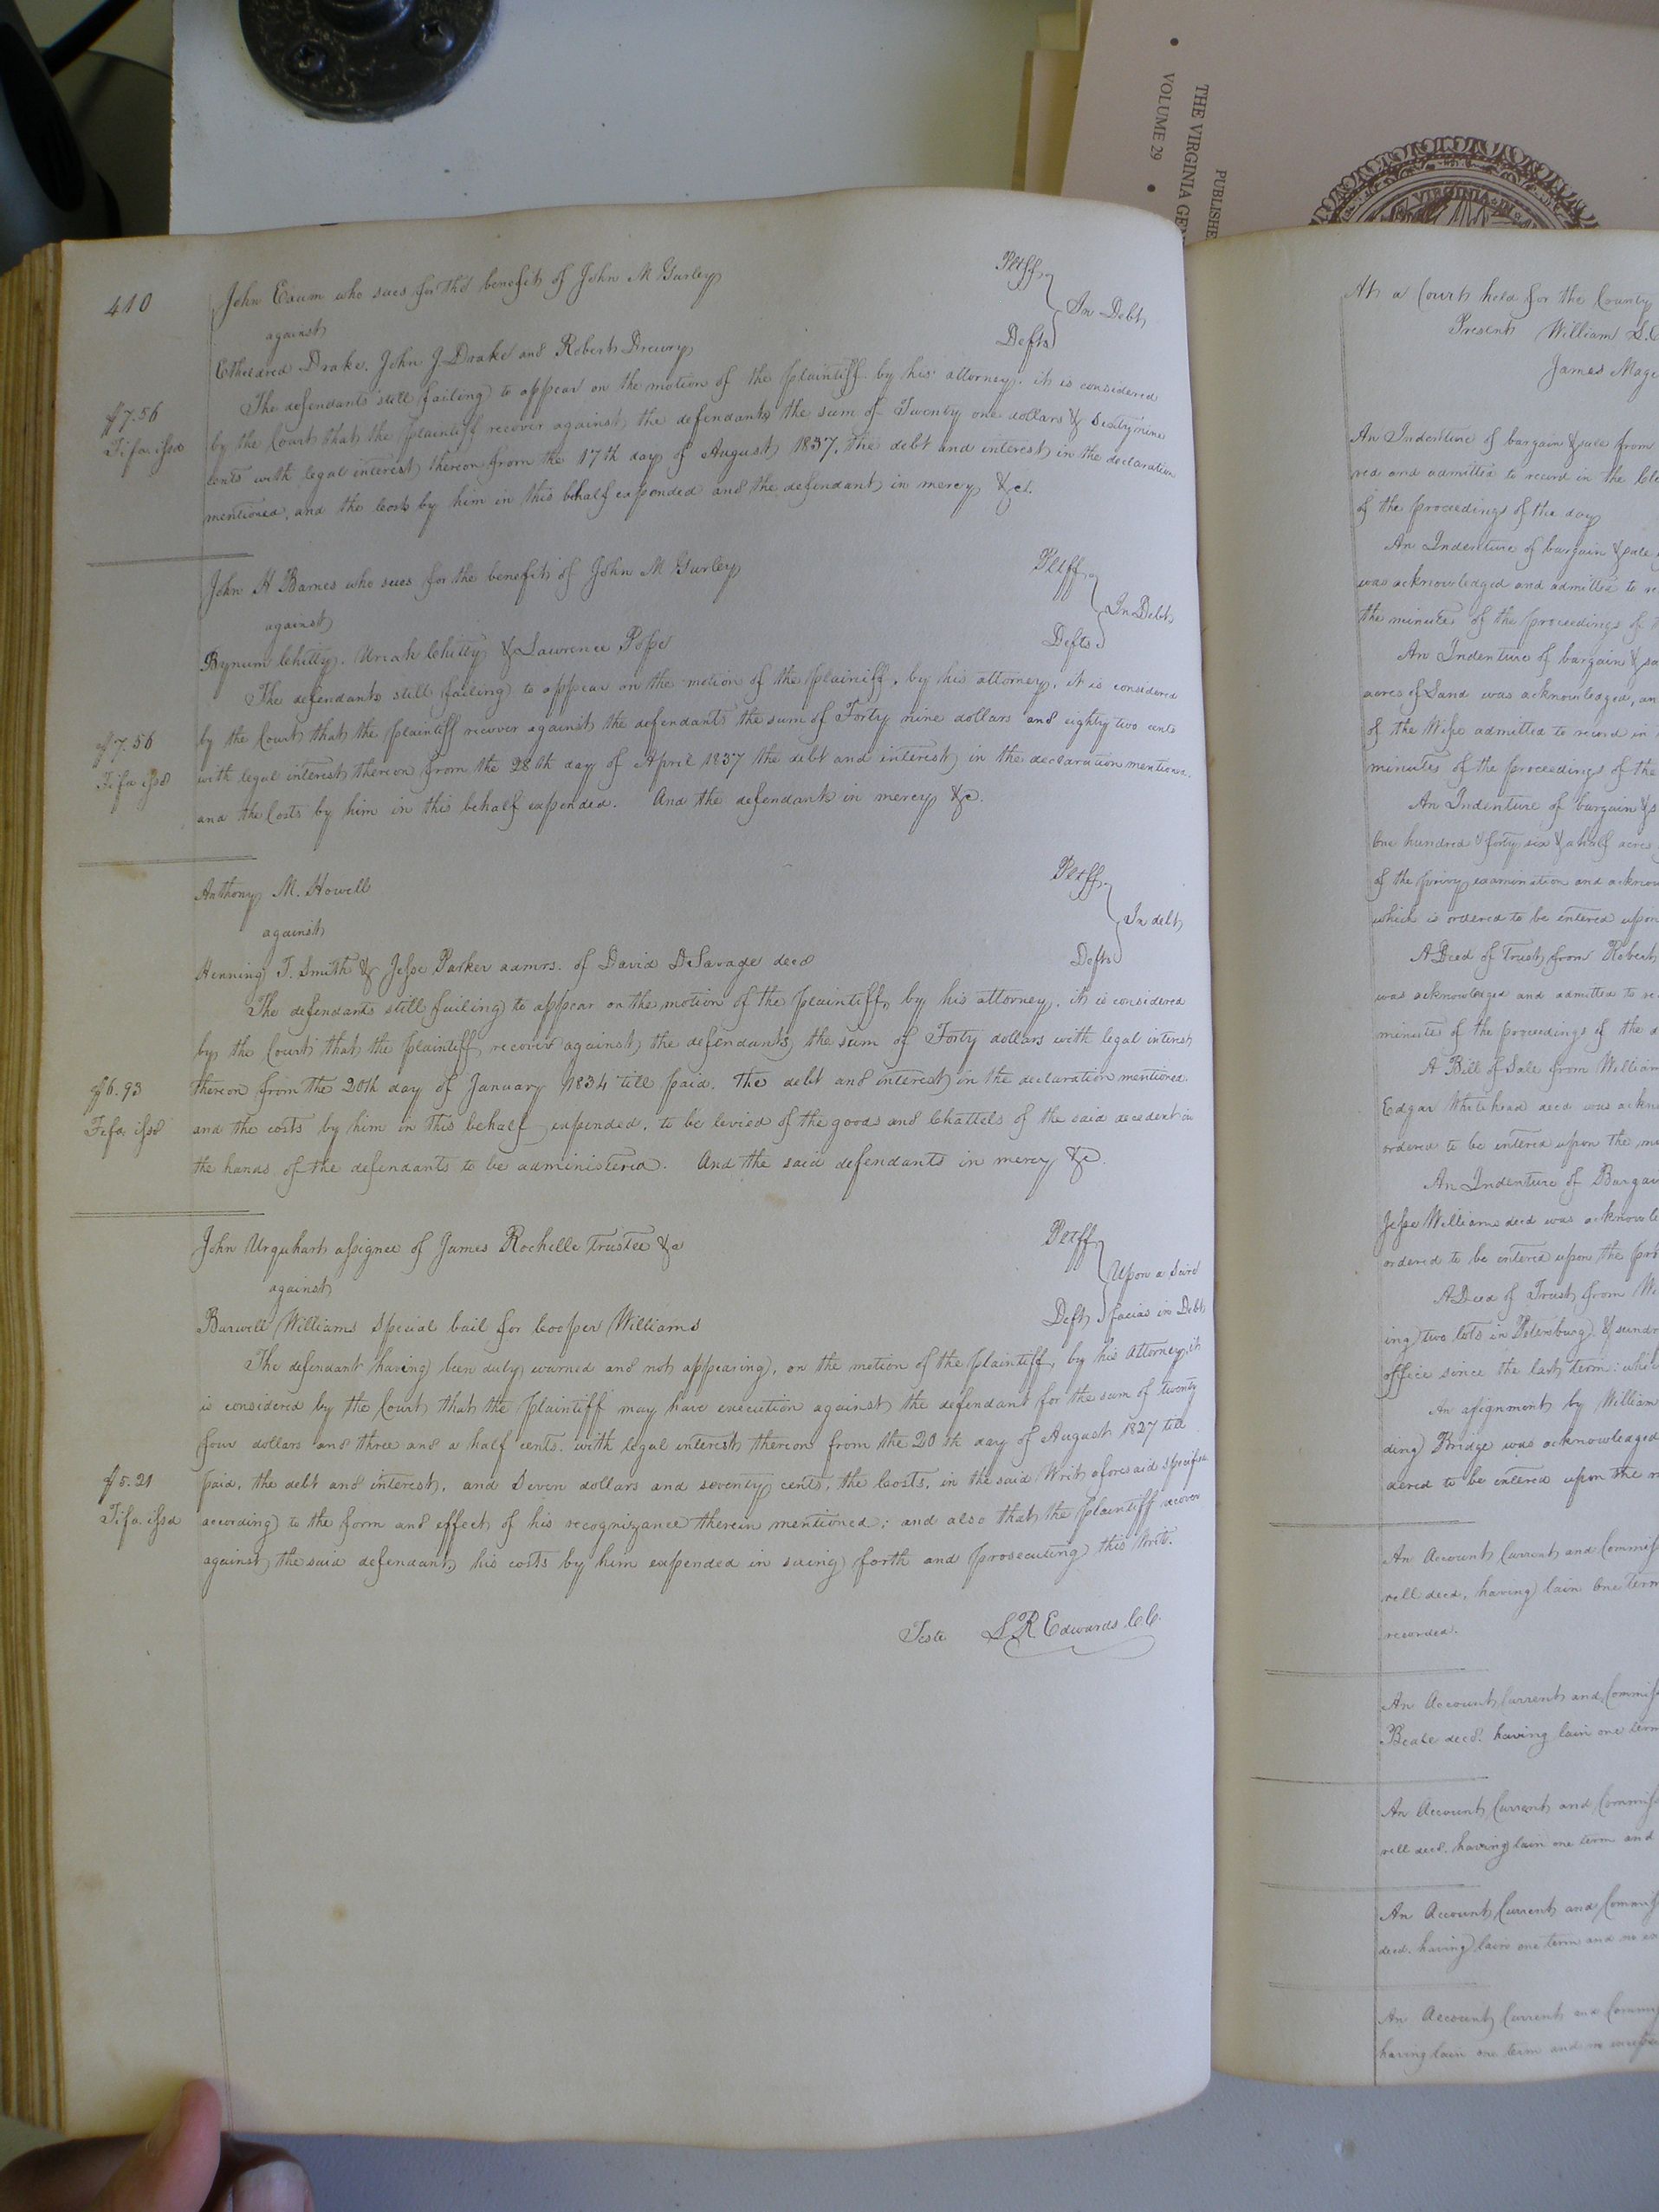 THE VIRGINIA GEN
VOLUME 29
PUBLISHE
VIRGINIA
410
John Exum who sues for the benefit of John M Gurley Pltff
against In Debt
Etheldred Drake, John J. Drake and Robert Drewry Defts
The defendants still failing to appear on the motion of the plaintiff by his attorney, it is considered
$7.56 by the Court that the plaintiff recover against the defendants the sum of Twenty one dollars & Sixty nine
Fi fa issd cents with legal interest thereon from the 17th day of August 1837, the debt and interest in the declaration
mentioned, and the Costs by him in this behalf expended and the defendant in mercy &c.
John H Barnes who sues for the benefit of John M Gurley Pltff
against In Debt
Bynum Chitty, Uriah Chitty & Lawrence Pope Defts
The defendants still failing to appear on the motion of the plaintiff, by his attorney, it is considered
$7.56 by the Court that the plaintiff recover against the defendants the sum of Forty nine dollars and eighty two cents
Fi fa issd with legal interest thereon from the 28th day of April 1837 the debt and interest in the declaration mentioned,
and the Costs by him in this behalf expended. And the defendants in mercy &c.
Anthony M. Howell Pltff
against In debt
Henning T. Smith & Jesse Parker admrs. of David DSavage decd Defts
The defendants still failing to appear on the motion of the plaintiff, by his attorney, it is considered
by the Court that the plaintiff recover against the defendants the sum of Forty dollars with legal interest
$6.93 thereon from the 20th day of January 1834 till paid. The debt and interest in the declaration mentioned
Fi fa issd and the costs by him in this behalf expended, to be levied of the goods and Chattels of the said decedent in
the hands of the defendants to be administered. And the said defendants in mercy &c.
John Urquhart assignee of James Rochelle Trustee &c Pltff
against Upon a Scire
Burwell Williams Special bail for Cooper Williams Deft facias in Debt
The defendant having been duly warned and not appearing, on the motion of the plaintiff, by his Attorney, it
is considered by the Court that the plaintiff may have execution against the defendant for the sum of twenty
four dollars and three and a half cents, with legal interest thereon from the 20th day of August 1827 till
$5.21 paid, the debt and interest, and Seven dollars and seventy cents, the Costs, in the said Writ aforesaid specified
Fi fa issd according to the form and effect of his recognizance therein mentioned; and also that the plaintiff recover
against the said defendant, his costs by him expended in suing forth and prosecuting this Writ.
Teste L R Edwards C.C.
At a Court held for the County
Present William
James Mage
An Indenture of bargain & sale from
red and admitted to record in the Cle
of the proceedings of the day
An Indenture of bargain & sale
was acknowledged and admitted to re
the minutes of the proceedings of
An Indenture of bargain & sa
acres of Land was acknowledged, an
of the Wife admitted to record in
minutes of the proceedings of the
An Indenture of bargain & s
One hundred & forty six & a half acres
of the privy examination and acknow
which is ordered to be entered upon
A Deed of Trust from Robert
was acknowledged and admitted to re
minutes of the proceedings of the d
A Bill of Sale from William
Edgar Whitehead decd was ackno
ordered to be entered upon the m
An Indenture of Bargai
Jesse Williams decd was acknowle
ordered to be entered upon the pro
A Deed of Trust from W
ing two lots in Petersburg & sundr
office since the last term: whi
An assignment by William
ding Bridge was acknowledged
dered to be entered upon the m
An Account Current and Commiss
rell decd, having lain One Term
recorded.
An Account Current and Commiss
Beale decd. having lain one term
An Account Current and Commiss
rell decd. having lain one term and
An Account Current and Commiss
decd. having lain one term and no ex
An Account Current and Commiss
having lain one term and no excepti